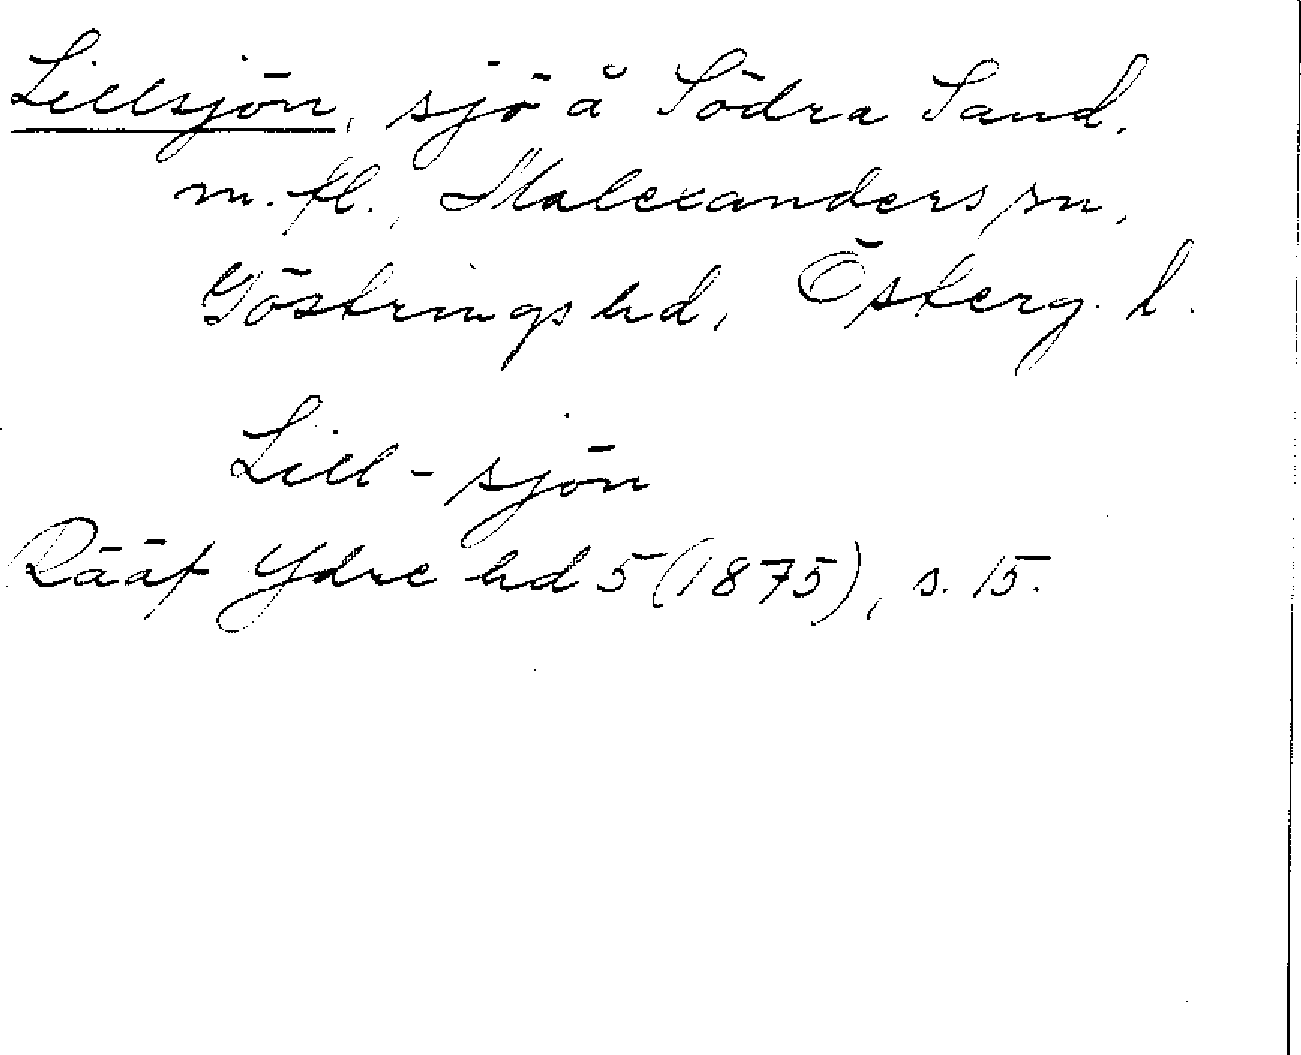 Lillsjön, sjö å Södra Sand.
m. fl., Malexanders sn,
Göstrings hd, Österg. l.
Lill-sjön
Rääf Ydre hd 5 (1875), s. 15.